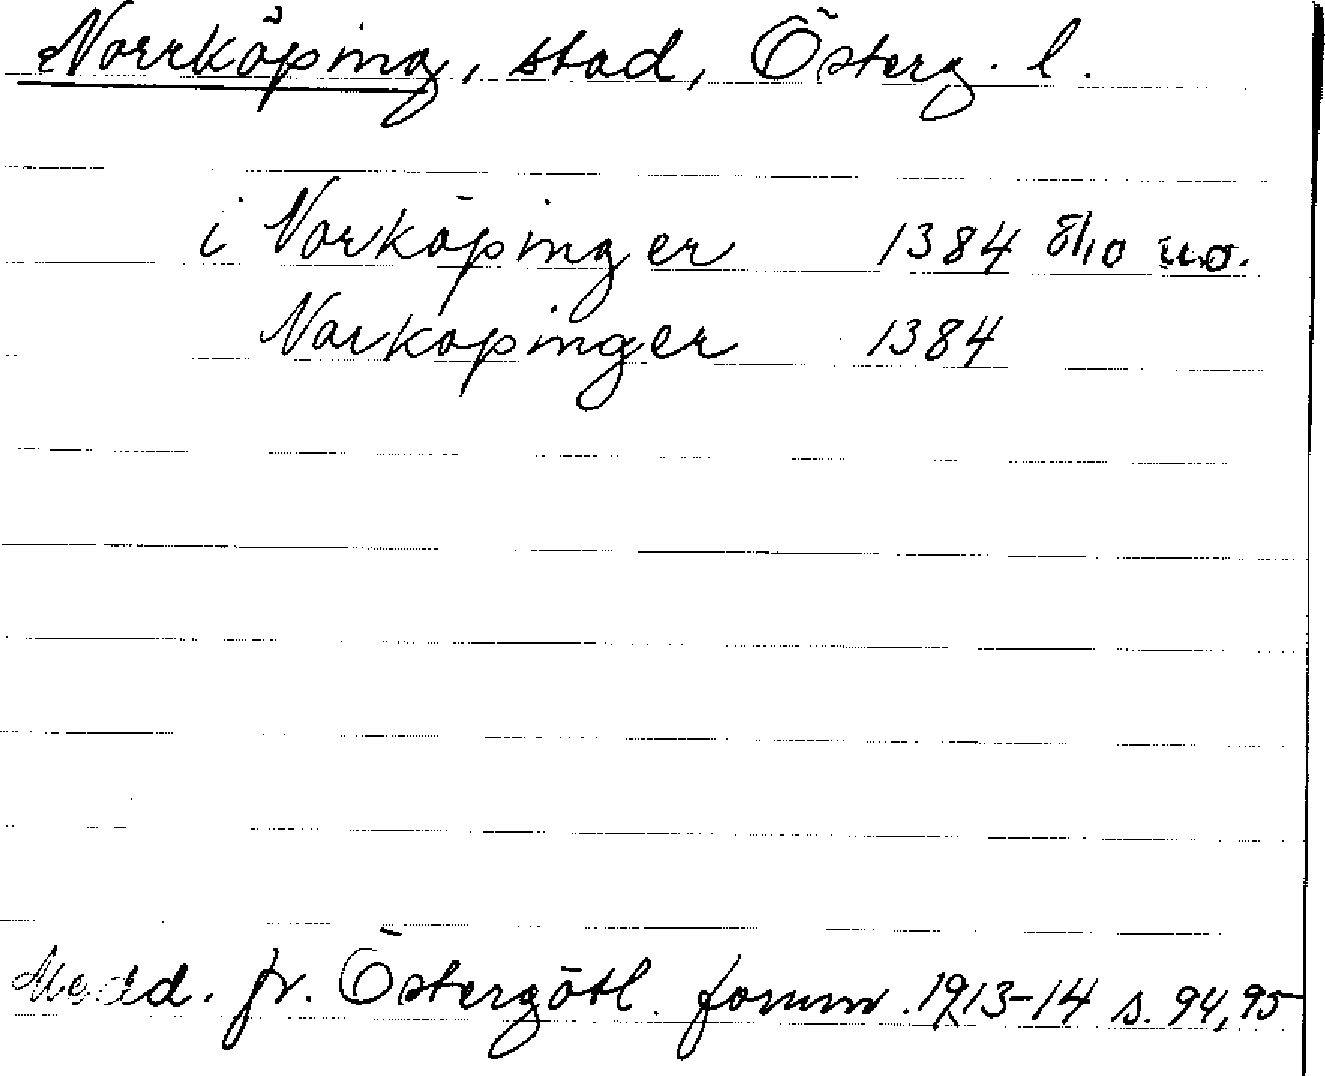 Norrköping, stad, Österg. l.
i Norköpinger 1384 5/10 u.o.
Norkopinger 1384
Medd. fr. Östergötl. fornm. 1913-14 s. 94,95